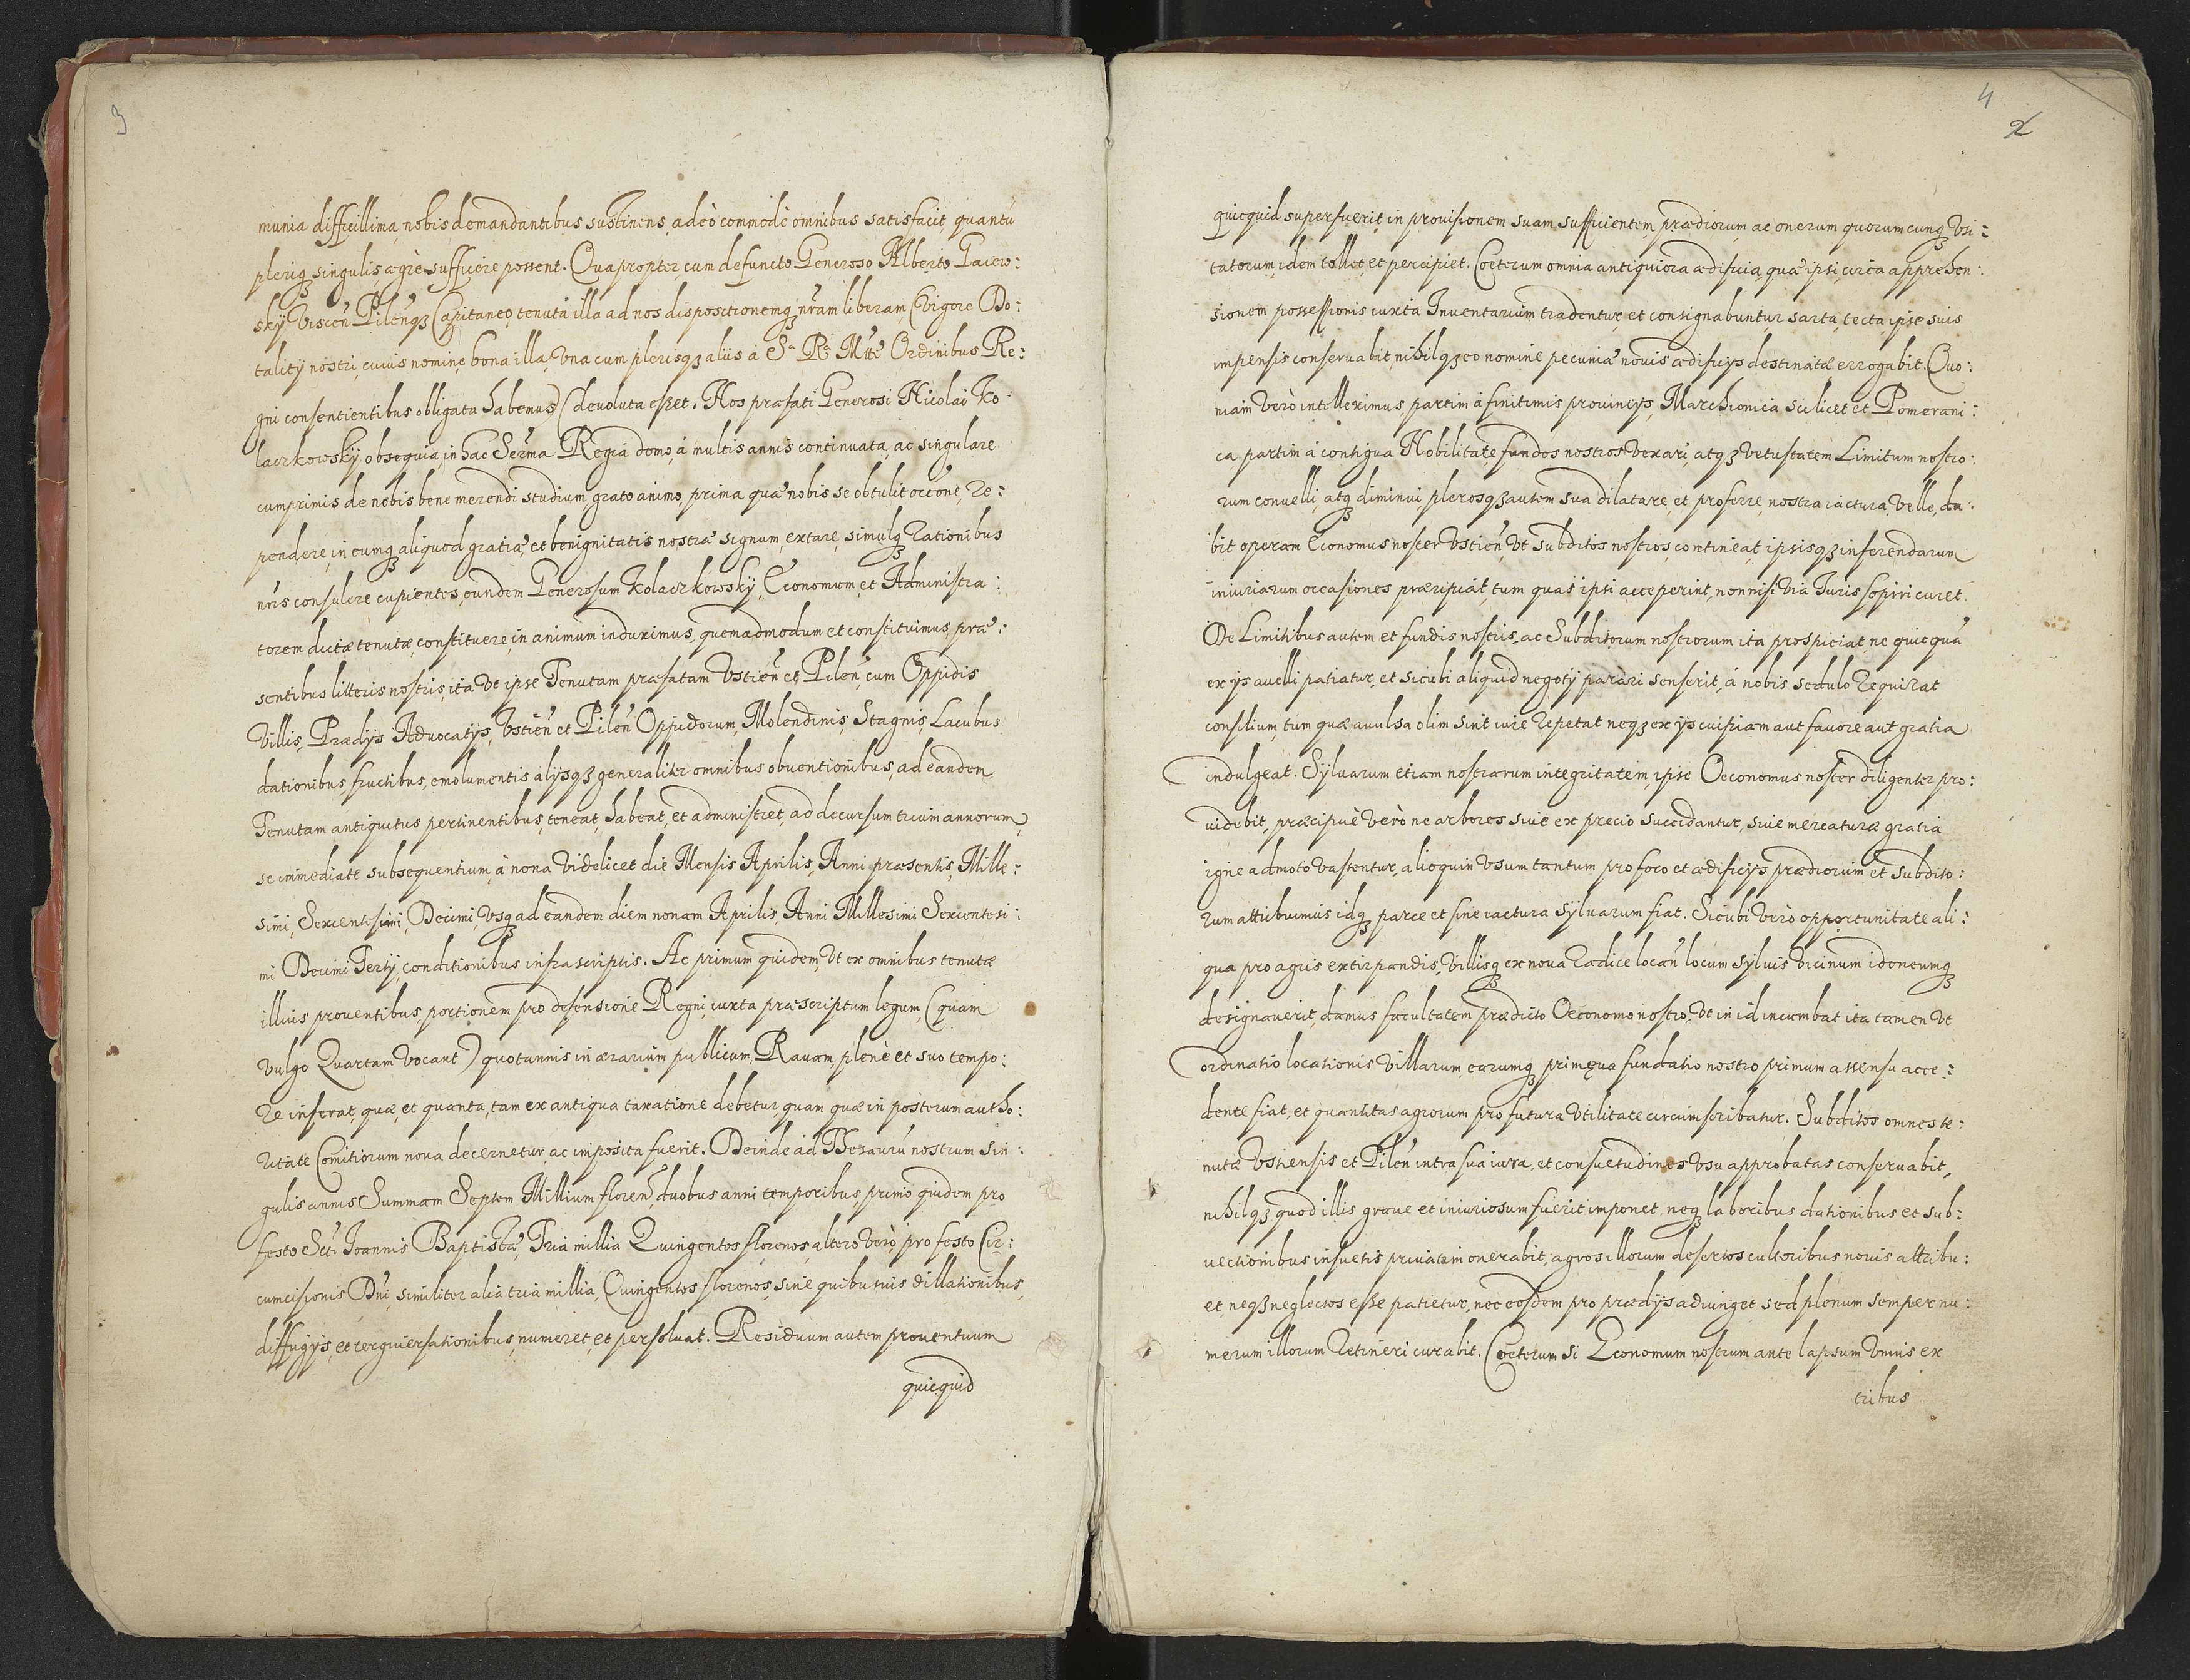 3
munia difficillima, nobis demandantibus sustinens, adeò commodè omnibus satisfacit, quantũ
pleriqȝ singulis, ægrè sufficere possent. Quapropter cum defuncto Generoso Alberto Gaiew:
skÿ Uscień Pileńqȝ Capitaneo, tenuta illa ad nos dispositionemqȝ nr̃am liberam, (vigore Do:
tality nostri, cuius nomine, bona illa, una cum plerisqȝ aliis à Sᵃ Rᵃ Mtte Ordinibus Re:
gni consentientibus obligata habemus) devoluta esset. Nos præfati Generosi Nicolai Ko:
laczkowskÿ, obsequia, in hac Sermã Regia domo, à multis annis continuata, ac singulare
cumprimis de nobis bene merendi studium, grato animo, prima quæ nobis se obtulit occõne, re:
pendere, in eumqȝ aliquod gratiæ et benignitatis nostræ signum, extare, simulqȝ rationibus
nr̃is consulere cupientes, eundem Generosum Kolaczkowskÿ, Œconomum, et Administra:
torem dictæ tenutæ, constituere, in animum induximus, quemadmodum et constituimus, præ:
sentibus litteris nostris, ita ut ipse Tenutam præfatam Ustień et Pileń, cum Oppidis
Villis, Prædijs Advocatijs, Ustień et Pileń Oppidorum, Molendinis, Stagnis, Lacubus
dationibus, fructibus, emolumentis alijsqȝ generaliter omnibus obventionibus, ad eandem
Tenutam antiquitus pertinentibus, teneat, habeat, et administret, ad decursum trium annorum,
se immediate subsequentium, à nona videlicet die Mensis Aprilis, Anni præsentis, Mille:
simi, Sexcentesimi, Decimi, usqȝ ad eandem diem nonam Aprilis, Anni Millesimi Sexcentesi:
mi Decimi Tertij, conditionibus infrascriptis. Ac primum quidem, ut ex omnibus tenutæ
illius proventibus, portionem pro defensione Regni, iuxta præscriptum legum, (quam
vulgo Quartam vocant) quotannis in ærarium publicum, Ravam, plenè et suo tempo:
re inferat, quæ, et quanta, tam ex antiqua taxatione debetur, quam quæ in posterum autho:
ritate Comitiorum nova decernetur, ac imposita fuerit. Deinde ad Thesaurũ nostrum sin:
gulis annis Summam Septem Millium floreń, duobus anni temporibus, primo quidem pro
festo Scti Joannis Baptistæ, Tria millia Quingentos florenos, altero verò, pro festo Cir:
cumcisionis Dñi, similiter alia tria millia, Quingentos florenos, sine quibusvis dillationibus,
diffugijs, et tergiversationibus, numeret, et persolvat. Residuum autem proventuum
quicquid
4
2
quicquid superfuerit, in provisionem suam sufficientem, prædiorum, ac onerum quorumcunqȝ usi:
tatorum, idem tollet, et percipiet. Cœterum omnia antiquiora ædificia, quæ ipsi, circa apprehen:
sionem possessionis iuxta Inventarium tradentur, et consignabuntur, sarta, tecta, ipse suis
impensis conservabit, nihilqȝ eo nomine pecuniæ novis ædificijs destinatæ, errogabit. Quo:
niam verò intelleximus, partim à finitimis provincijs, Marchionica scilicet et Pomerani:
ca partim à contigua Nobilitate, fundos nostros vexari, atqȝ vetustatem Limitum nostro:
rum convelli, atqȝ diminui, plerosqȝ autem sua dilatare, et proferre, nostra iactura, velle, da:
bit operam Œconomus noster Ustień, ut subditos nostros, contineat, ipsisqȝ inferendarum
iniuriarum occasiones præripiat, tum quas ipsi acceperint, nonnisi via Iuris sopiri curet.
De Limitibus autem et fundis nostris, ac Subditorum nostrorum ita prospiciat, ne quicquã
ex ijs avelli patiatur, et sicubi aliquid negotij parari senserit, à nobis sedulo requirat
consilium, tum quæ avulsa olim sint, iure repetat neqȝ ex ijs cuipiam aut favore aut gratia
indulgeat. Sylvarum etiam nostrarum integritatem, ipse Oeconomus noster diligenter pro:
videbit, præcipuè verò ne arbores sive ex precio succidantur, sive mercaturæ gratia
igne admoto vastentur, alioquin usum tantum pro foco et ædificijs prædiorum et subdito:
rum attribuimus idqȝ parce et sine iactura sylvarum fiat. Sicubi vero opportunitate ali:
qua pro agris extirpandis, Villisqȝ ex nova radice locań locum sylvis vicinum idoneumqȝ
designaverit, damus facultatem prædicto Oeconomo nostro, ut in id incumbat ita tamen ut
ordinatio locationis Villarum, earumqȝ primęva fundatio nostro primum assensu acce:
dente fiat, et quantitas agrorum pro futura utilitate circumscribatur. Subditos omnes te:
nutæ Ustiensis et Pileń intra sua iura, et consuetudines usu approbatas conservabit,
nihilqȝ quod illis grave et iniuriosum fuerit imponet, neqȝ laboribus dationibus et sub:
vectionibus insuetis privatim onerabit, agros illorum desertos cultoribus novis attribu:
et, neqȝ neglectos esse patietur, nec eosdem pro prædijs adiunget sed plenum semper nu:
merum illorum retineri curabit. Cœterum si Œconomum nostrum ante lapsum unius ex
tribus